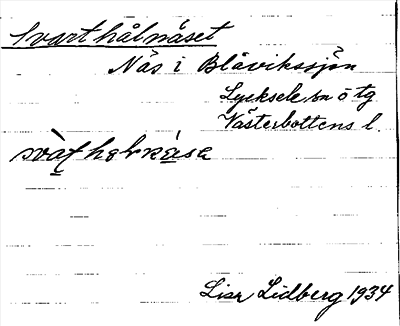 Svarthålnäset
Näs i Blåvikssjön
Lycksele sn o tg
Västerbottens l.
Lisa Lidberg 1934